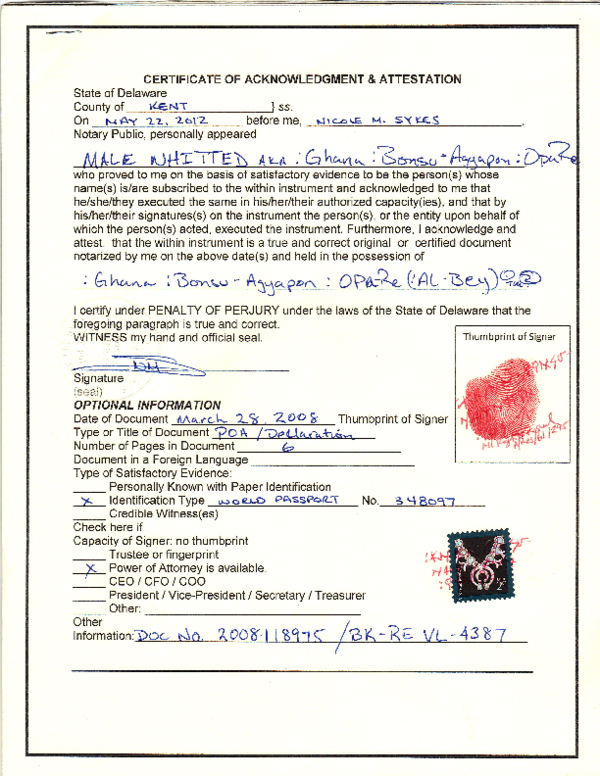 CERTIFICATE OF ACKNOWLEDGMENT & ATTESTATION
State of Delaware
County of KENT } ss.
On MAY 22, 2012 before me, NICOLE M. SYKES,
Notary Public, personally appeared
MALE WHITTED AKA :Ghana :Bonsu-Agyapon :OpaRe
who proved to me on the basis of satisfactory evidence to be the person(s) whose
name(s) is/are subscribed to the within instrument and acknowledged to me that
he/she/they executed the same in his/her/their authorized capacity(ies), and that by
his/her/their signatures(s) on the instrument the person(s), or the entity upon behalf of
which the person(s) acted, executed the instrument. Furthermore, I acknowledge and
attest, that the within instrument is a true and correct original or certified document
notarized by me on the above date(s) and held in the possession of
:Ghana :Bonsu-Agyapon :OPaRe (:AL-Bey)
I certify under PENALTY OF PERJURY under the laws of the State of Delaware that the
foregoing paragraph is true and correct.
WITNESS my hand and official seal.
Thumbprint of Signer
Signature
(seal)
OPTIONAL INFORMATION
Date of Document March 28, 2008 Thumbprint of Signer
Type or Title of Document POA/Declaration
Number of Pages in Document 6
Document in a Foreign Language
Type of Satisfactory Evidence:
Personally Known with Paper Identification
X Identification Type WORLD PASSPORT No. 348097
Credible Witness(es)
Check here if
Capacity of Signer: no thumbprint
Trustee or fingerprint
X Power of Attorney is available.
CEO / CFO / COO
President / Vice-President / Secretary / Treasurer
Other:
Other
Information: DOC NO. 2008118975 /BK-RE VL-4387